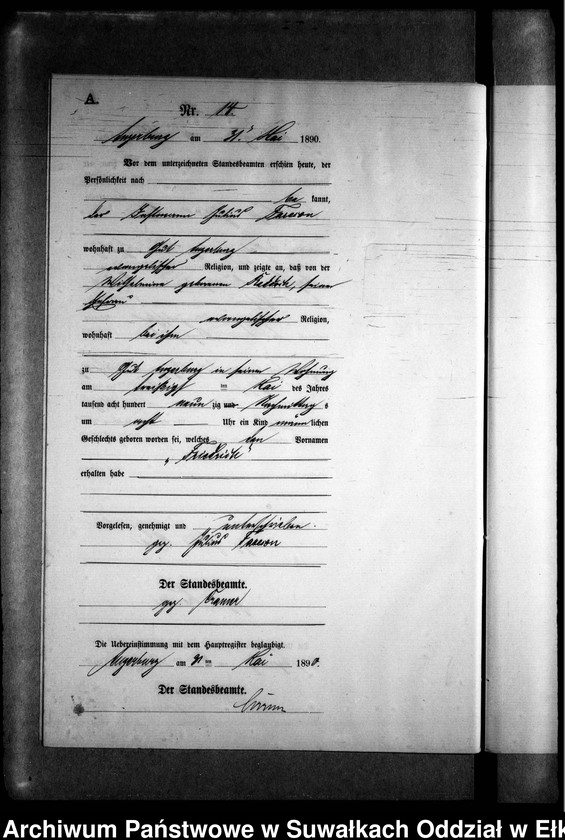 A.
Nr. 14.
Angerburg am 31ten Mai 1890.
Vor dem unterzeichneten Standesbeamten erschien heute, der
Persönlichkeit nach
be kannt,
der Julius
wohnhaft zu Gut Angerburg
evangelischer Religion, und zeigte an, daß von der
Wilhelmine geborenen seiner
Ehefrau
evangelischer Religion,
wohnhaft bei ihm
zu Gut Angerburg in seiner Wohnung
am dreißigsten Mai des Jahres
tausend acht hundert neun zig und Nachmittags
um acht Uhr ein Kind männlichen
Geschlechts geboren worden sei, welches den Vornamen
„Friedrich"
erhalten habe
Vorgelesen, genehmigt und unterschrieben.
gez. Julius
Der Standesbeamte.
gez.
Die Uebereinstimmung mit dem Hauptregister beglaubigt.
Angerburg am 31ten Mai 1890.
Der Standesbeamte.
Archiwum Państwowe w Suwałkach Oddział w Ełk